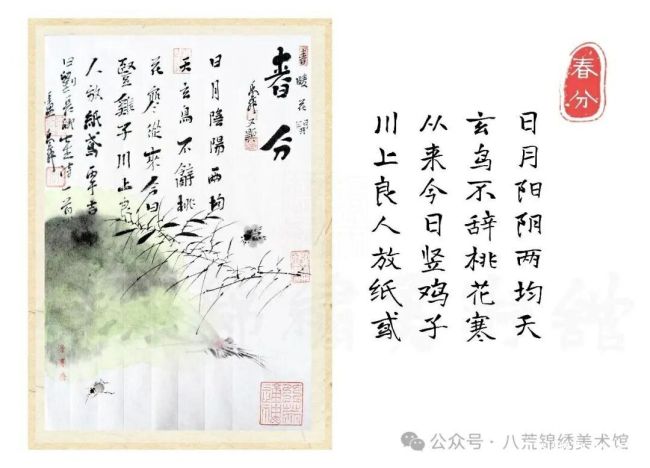 春分
日月陰陽两均
天玄鳥不辭桃
花寒從來今日
豎雞子川上良
人放紙鳶
春分
日月阳阴两均天
玄鸟不辞桃花寒
从来今日竖鸡子
川上良人放纸鸢
公众号·八荒锦绣美术馆